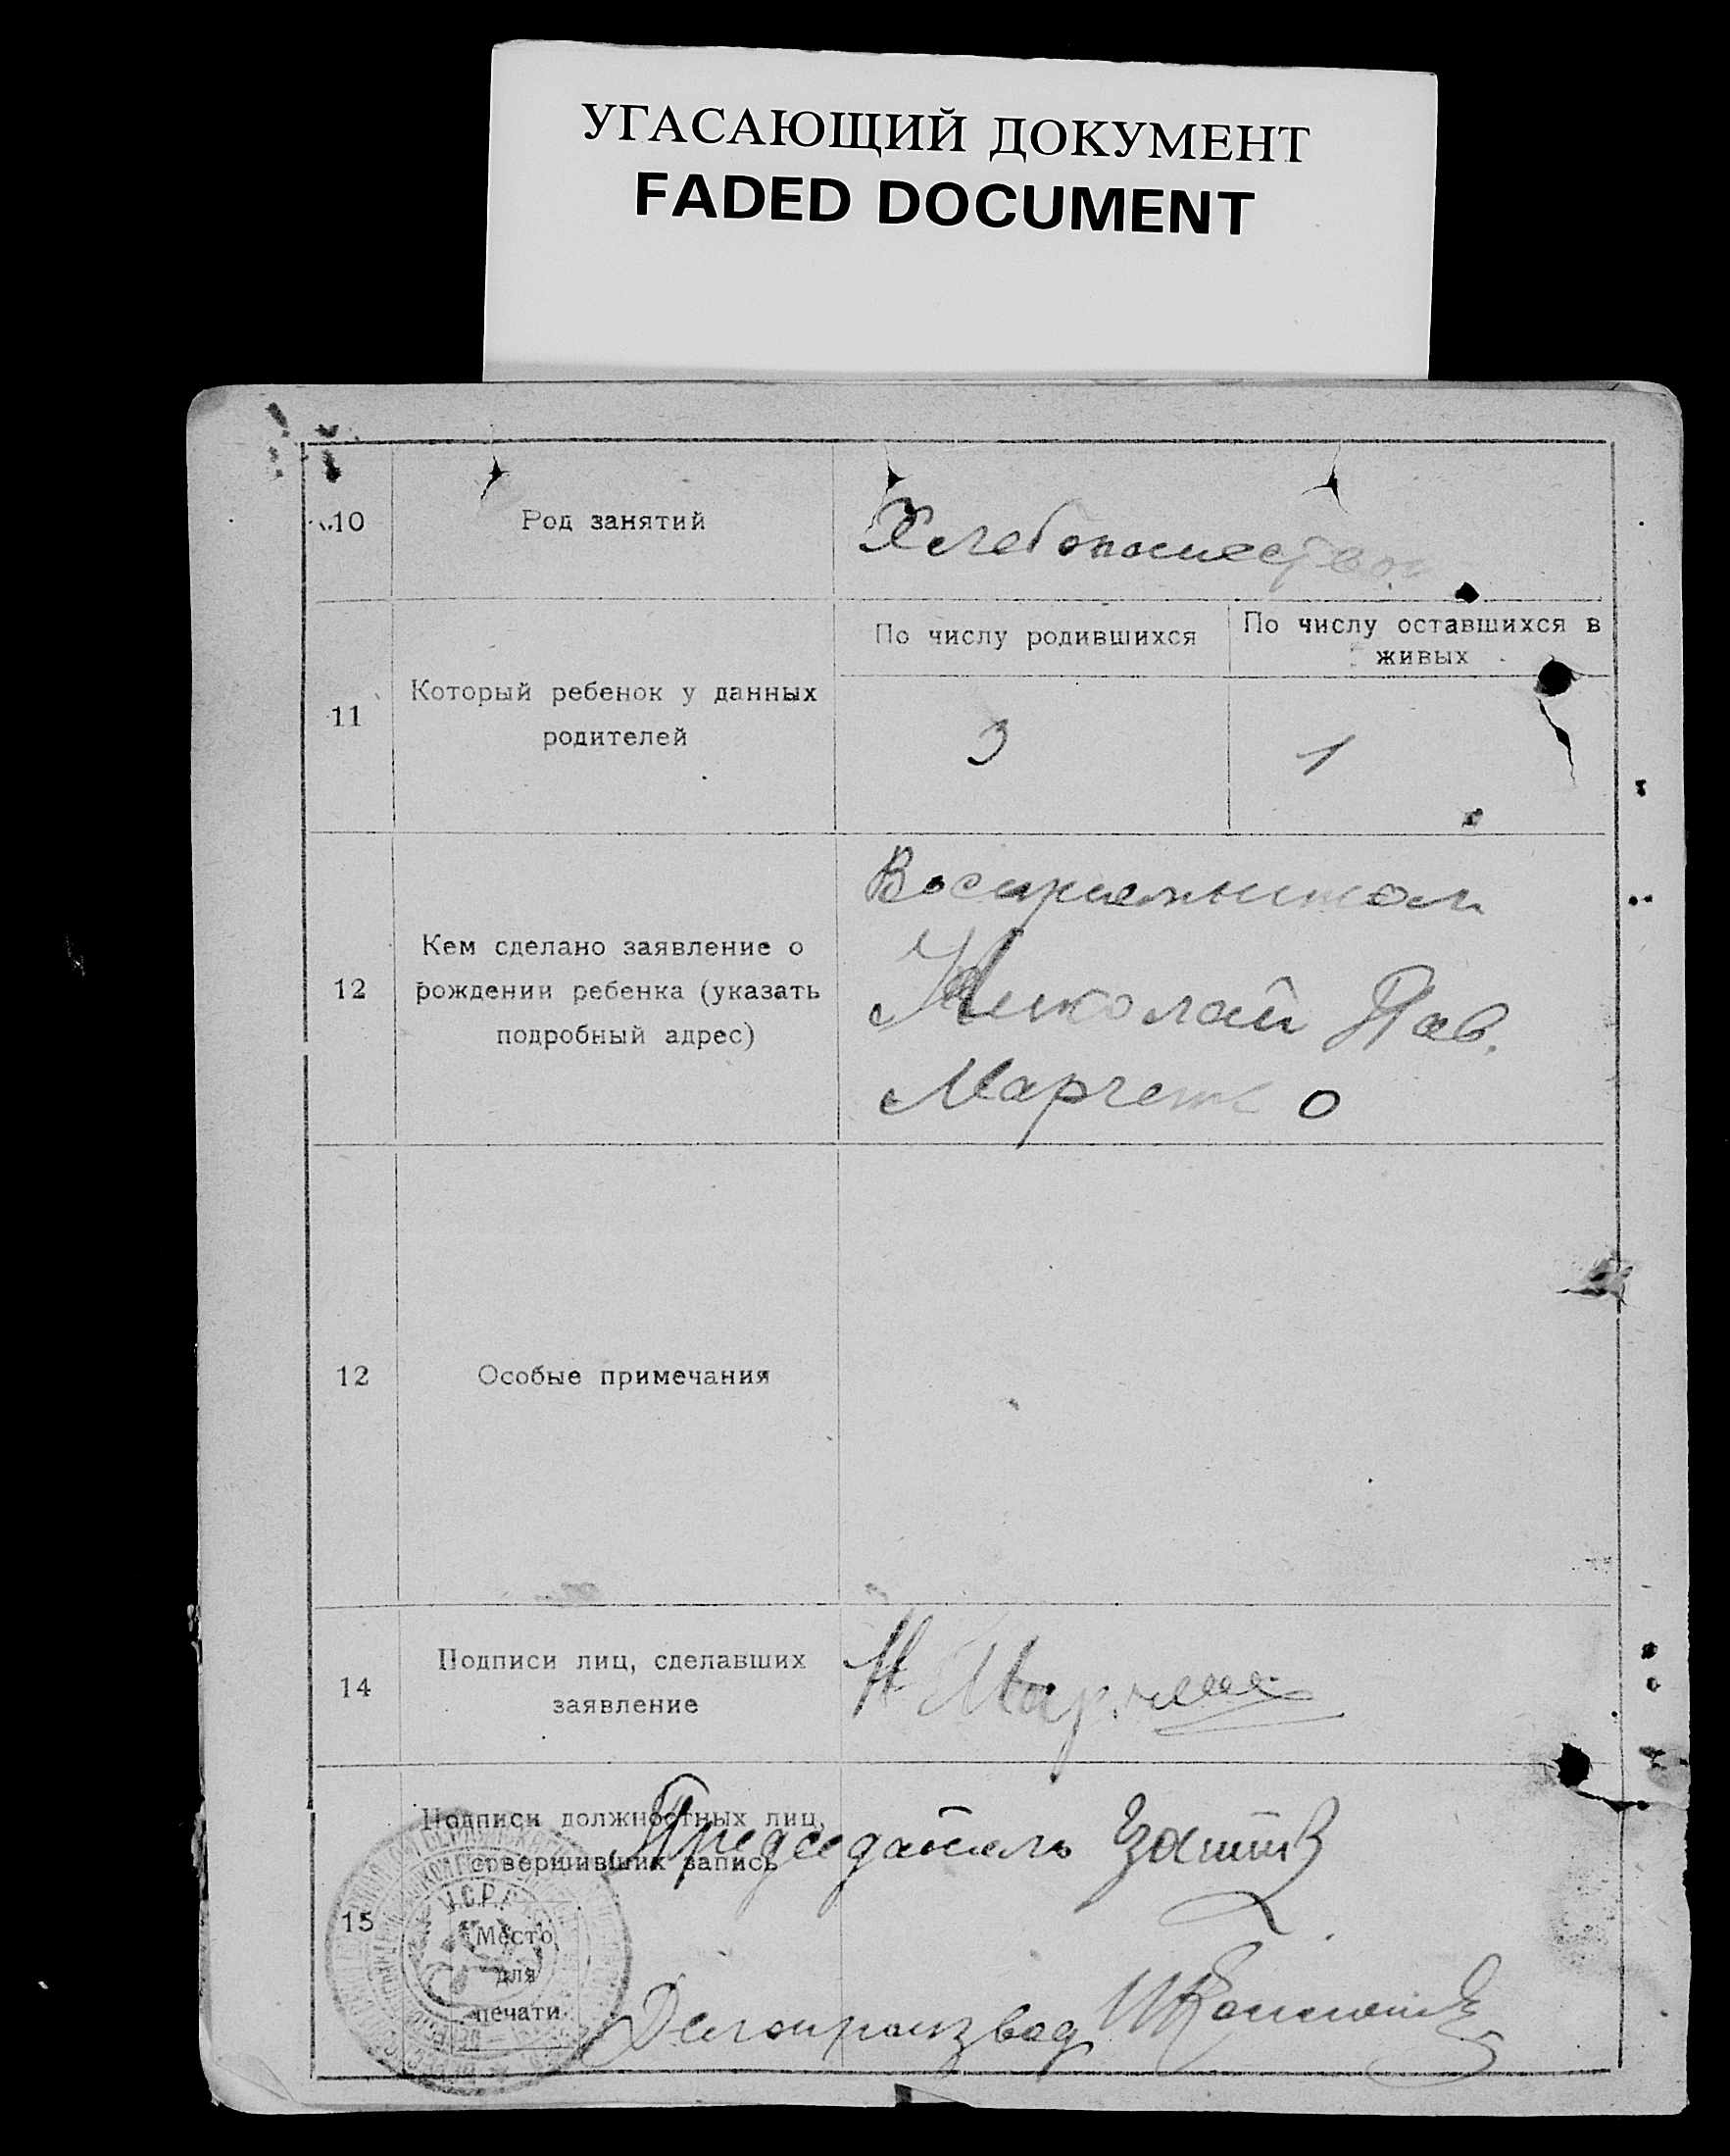 УГАСАЮЩИЙ ДОКУМЕНТ
FADED DOCUMENT
10
Род занятий
Хлебопашество
11
Который ребенок у данных
родителей
По числу родившихся
3
По числу оставшихся в
живых
1
12
Кем сделано заявление о
рождении ребенка (указать
подробный адрес)
Восприемником
Николай Пав.
Марченко
12
Особые примечания
14
Подписи лиц, сделавших
заявление
Н Марченко
15
Подписи должностных лиц,
совершивших запись
Председатель
У.С.Р.Р.
Место
для
печати
Делопроизвод